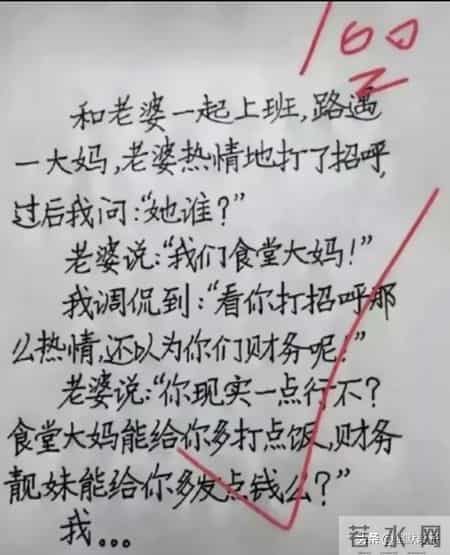 100
和老婆一起上班,路遇
一大妈,老婆热情地打了招呼,
过后我问:“她谁?”
老婆说:“我们食堂大妈!”
我调侃到:“看你打招呼那
么热情,还以为你们财务呢!”
老婆说:“你现实一点行不?
食堂大妈能给你多打点饭,财务
靓妹能给你多发点钱么?”
我...
若水网